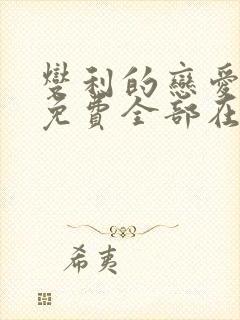 利的戀愛
免費全部在
希夷